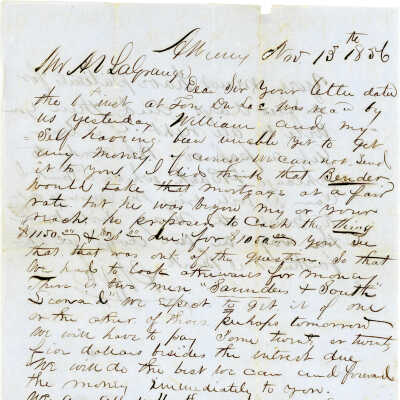 Nov 13th 1856
Mr A LaGrange
Dear Sir Your letter dated
the 1st inst at Fon Du Lac was rec'd by
us yesterday William and my-
self having been unable yet to get
any money of course we can not send
it to you I did think that Bender
would take that mortgage at a fair
rate but he was beyond my or your
reach. he proposed to cash the thing
$1150.00 & due for $1000 you see
that that was out of the question. So that
We had to look otherwise for money
There is two men "Saunders & South"
& we expect to get it of one
or the other of those perhaps tomorrow
We will have to pay some twenty or twenty
five dollars besides the interest due
We will do the best we can and forward
the money immediately to you.